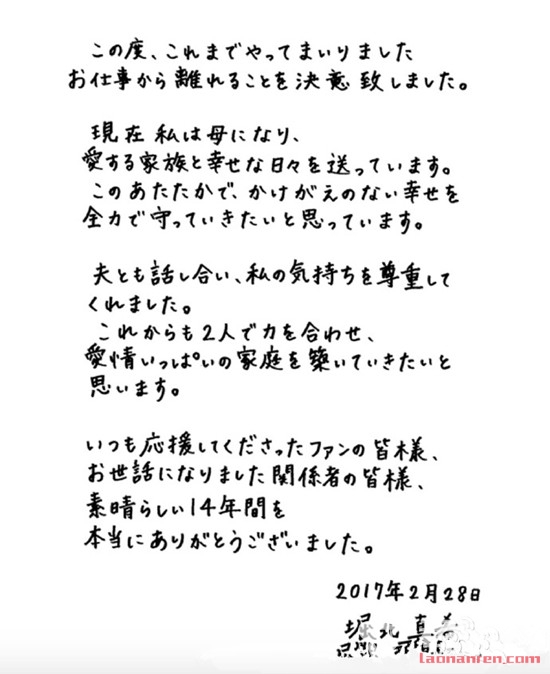 この度、これまでやってまいりました
お仕事から離れることを決意致しました。
現在私は母になり、
愛する家族と幸せな日々を送っています。
このあたたかで、かけがえのない幸せを
全力で守っていきたいと思っています。
夫とも話し合い、私の気持ちを尊重して
くれました。
これからも2人で力を合わせ、
愛情いっぱいの家庭を築いていきたいと
思います。
いつも応援してくださったファンの皆様、
お世話になりました関係者の皆様、
素晴らしい14年間を
本当にありがとうございました。
2017年2月28日
堀北真希
laonanren.com